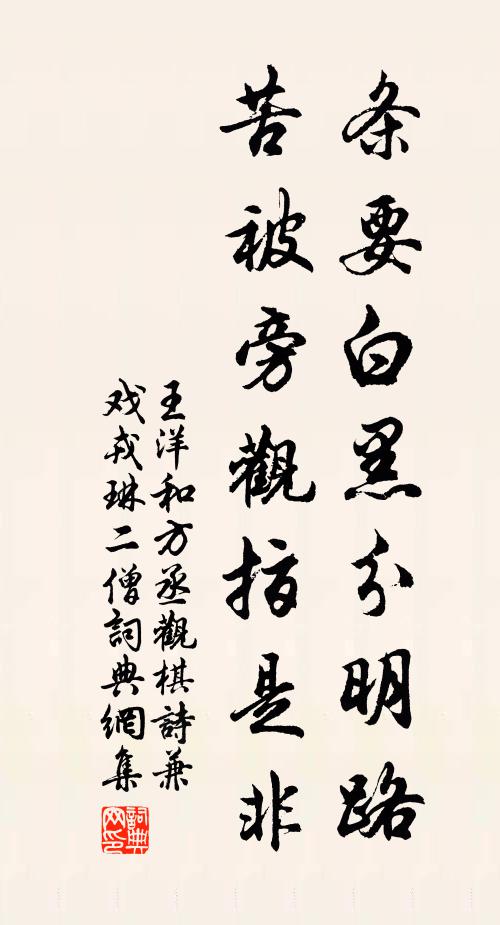 条要白黑分明路
苦被旁觀指是非
王洋和方丞觀棋詩兼
戏戎琳二僧詞典網集
詞典网印